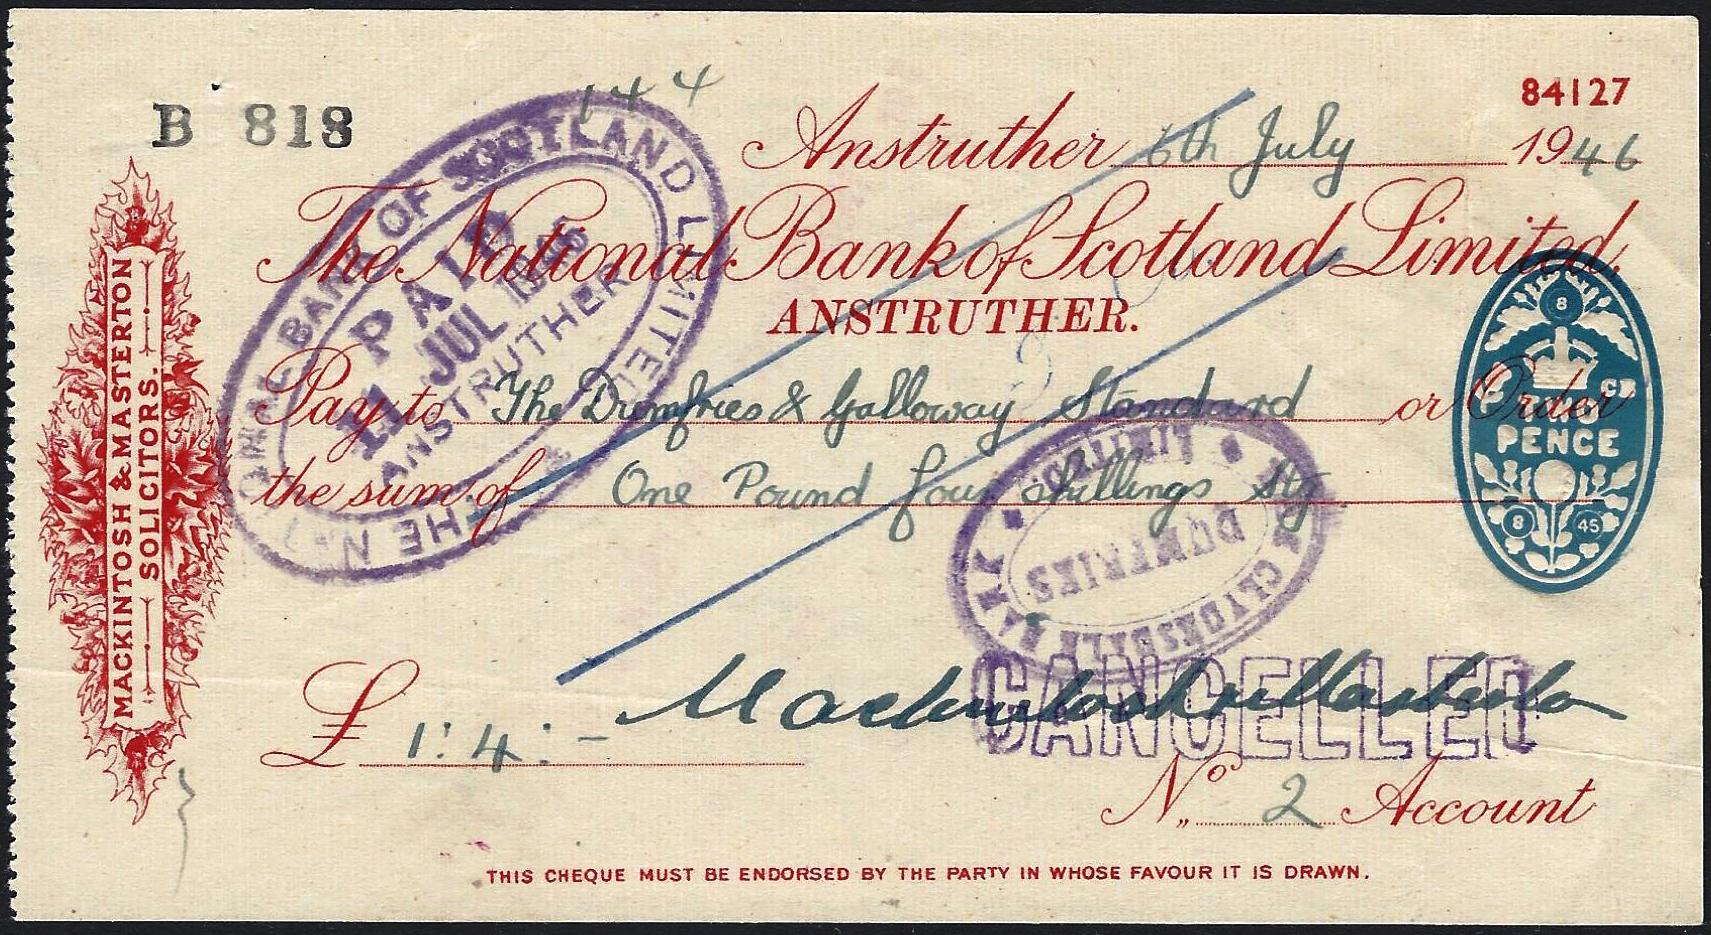 144
84127
B 818
Anstruther 6th July 1946
The National Bank of Scotland Limited,
ANSTRUTHER.
Pay to The Dumfries & Galloway Standard or Order
the sum of One Pound four shillings Stg
£ 1:4:-
Mackintosh & Masterton
No. 2 Account
THIS CHEQUE MUST BE ENDORSED BY THE PARTY IN WHOSE FAVOUR IT IS DRAWN.
MACKINTOSH & MASTERTON
SOLICITORS.
THE NATIONAL BANK OF SCOTLAND LIMITED
PAID
11 JUL 1946
ANSTRUTHER
THE CLYDESDALE BANK LIMITED
DUMFRIES
CANCELLED
8
TWO
PENCE
8 45